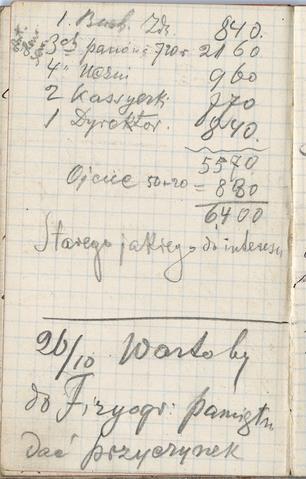 1. Buch. Zdz. 840.
3ch panów 720 r 2160
4" Woźni 960
2 Kassyerki 770
1 Dyrektor. 840.
5570
Ojcu 50+20 = 880
6400
Starego jakiego do interesu
26/10 Wartoby
do Fizyogr: pamiętn
dać przyczynek